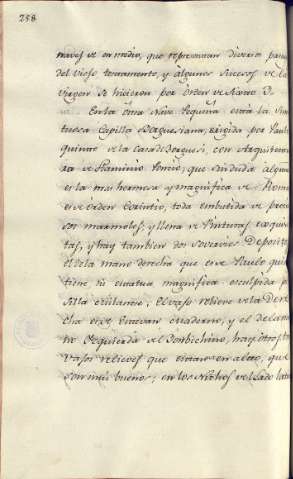 258
naves de en medio, que representan diversos pasos
del viejo testamento, y algunos sucesos de la
Virgen se hicieron por orden de Sixto
En la otra Nave Pequeña esta la
Capilla Borguesiana, erigida por Paulo
quinto de la casa de Borguesi, con Arquitectu
ra de Flaminio Poncio, que sin duda alguna
es la mas hermosa y magnifica de Roma
es de orden Corintio, toda embutida de precio
sos marmoles, y llena de Pinturas exquisi
tas, y hay tambien dos Depositos
el de la mano derecha que es de Paulo quinto
tiene su estatua magnifica esculpida por
Silla el vaso relieve de la dere
cha es de Estevan y el de la ma
no izquierda de hay otros
vasos relieves que estan en alto, que
son mui buenos; en los Nichos del lado